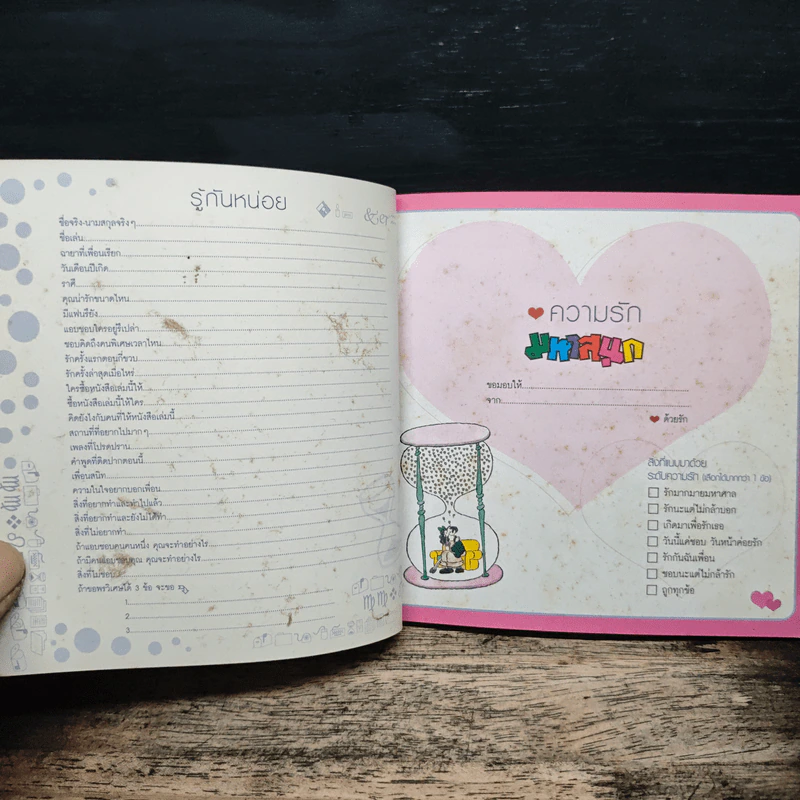 รู้กันหน่อย
ชื่อจริง-นามสกุลจริงๆ
ชื่อเล่น
ฉายาที่เพื่อนเรียก
วันเดือนปีเกิด
ราศี
คุณน่ารักขนาดไหน
มีแฟนรึยัง
แอบชอบใครอยู่รึเปล่า
ชอบคิดถึงคนพิเศษเวลาไหน
รักครั้งแรกตอนกี่ขวบ
รักครั้งล่าสุดเมื่อไหร่
ใครซื้อหนังสือเล่มนี้ให้
ซื้อหนังสือเล่มนี้ให้ใคร
คิดยังไงกับคนที่ให้หนังสือเล่มนี้
สถานที่ที่อยากไปมากๆ
เพลงที่โปรดปราน
คำพูดที่ติดปากตอนนี้
เพื่อนสนิท
ความในใจอยากบอกเพื่อน
สิ่งที่อยากทำและทำไปแล้ว
สิ่งที่อยากทำและยังไม่ได้ทำ
สิ่งที่ไม่อยากทำ
ถ้าแอบชอบคนคนหนึ่ง คุณจะทำอย่างไร
ถ้ามีคนแอบชอบคุณ คุณจะทำอย่างไร
สิ่งที่ไม่ชอบ
ถ้าขอพรวิเศษได้ 3 ข้อ จะขอ
1.
2.
3.
ความรัก
มหาสนุก
ขอมอบให้
จาก
ด้วยรัก
สิ่งที่แนบมาด้วย
ระดับความรัก (เลือกได้มากกว่า 1 ข้อ)
รักมากมายมหาศาล
รักนะแต่ไม่กล้าบอก
เกิดมาเพื่อรักเธอ
วันนี้แค่ชอบ วันหน้าค่อยรัก
รักกันฉันเพื่อน
ชอบนะแต่ไม่กล้ารัก
ถูกทุกข้อ